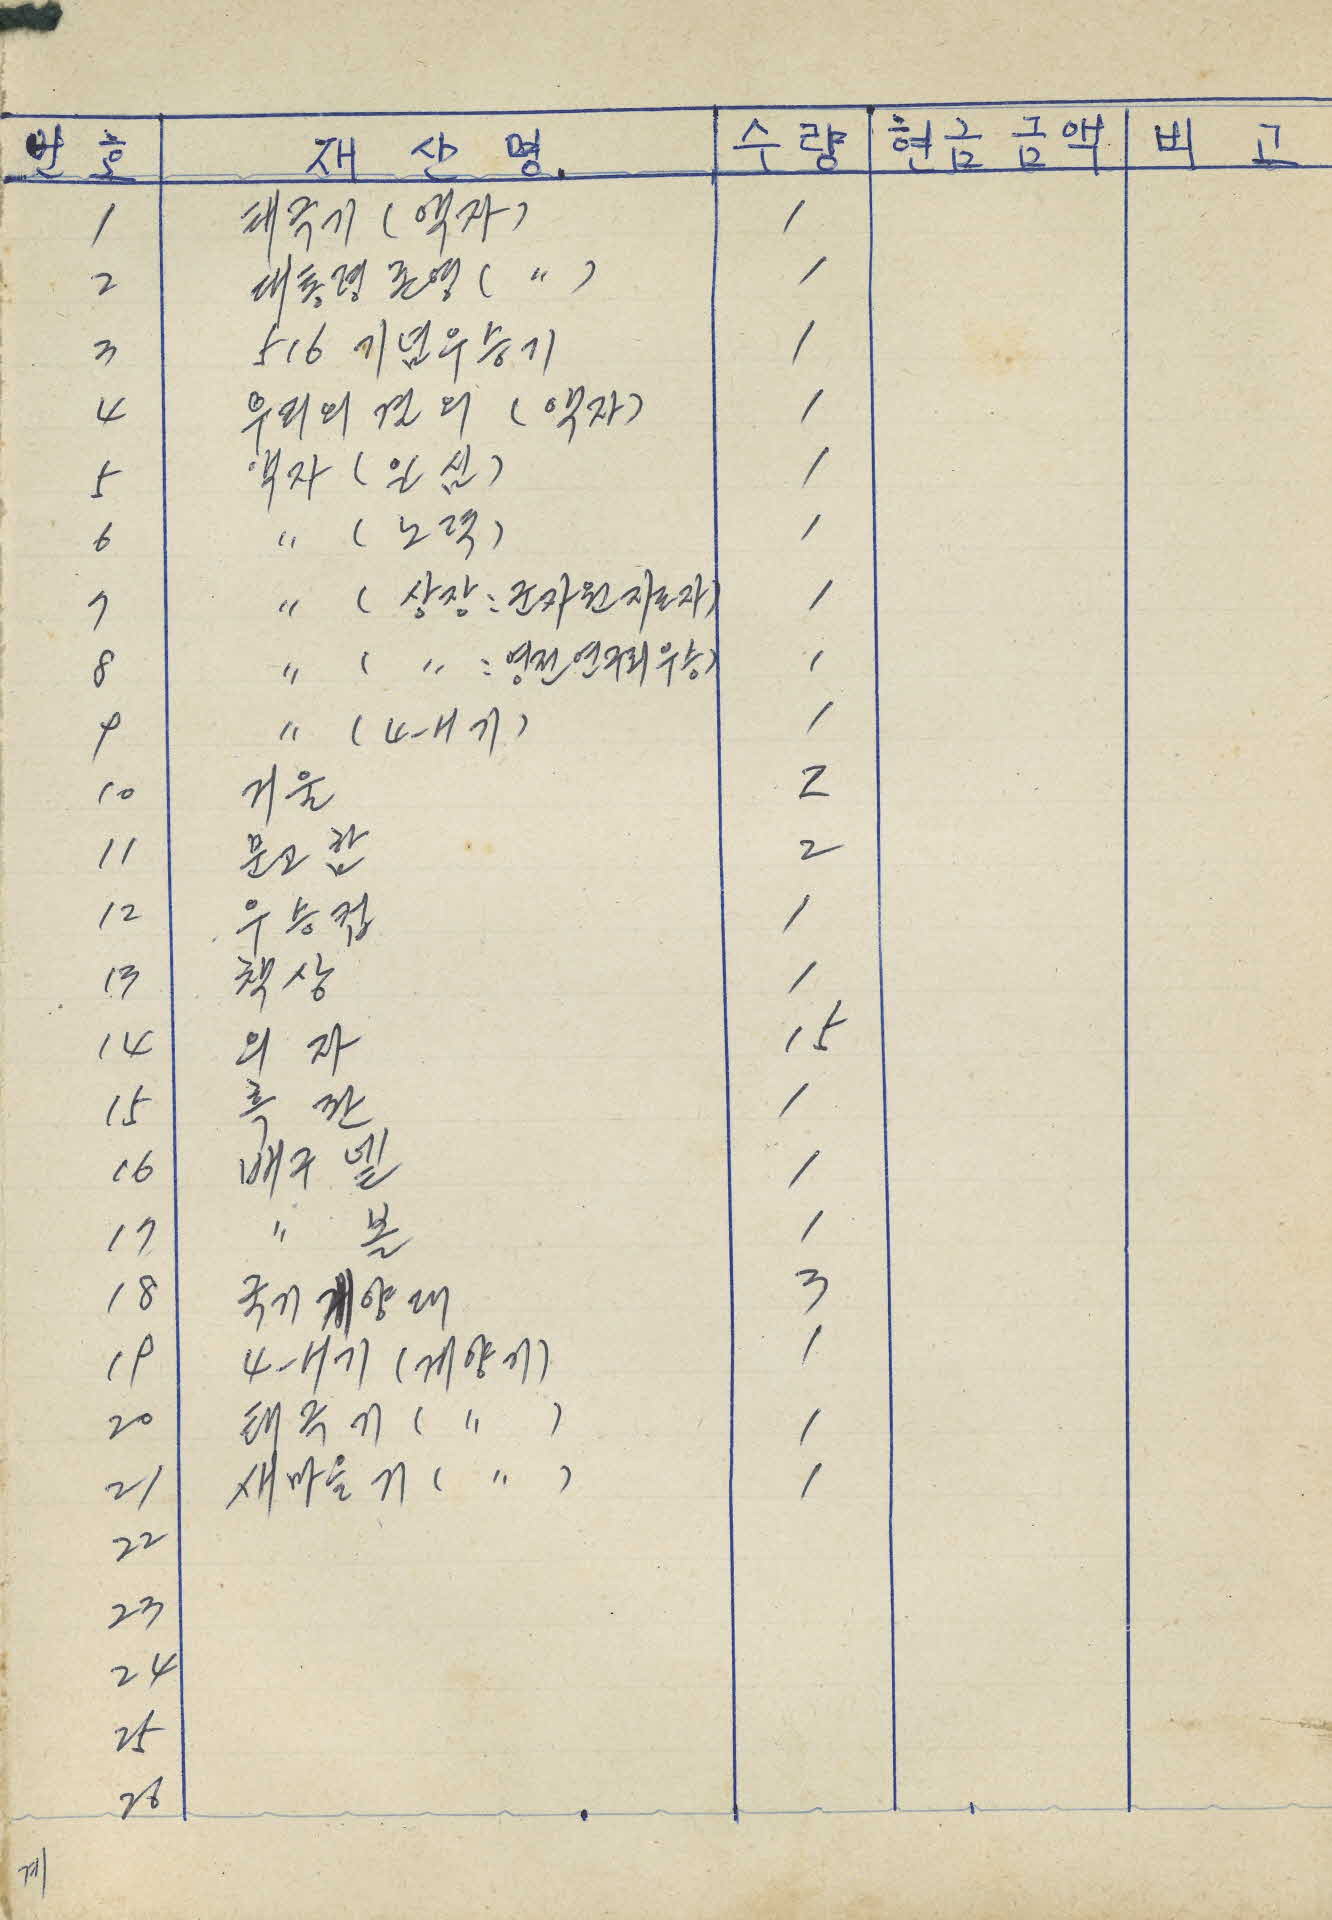 번호 재산명 수량 현금금액 비고
1 태극기 (액자) 1
2 대통령존영 ( 〃 ) 1
3 516 기념우승기 1
4 우리의 결의 (액자) 1
5 액자 ( ) 1
6 〃 (노력) 1
7 〃 (상장: ) 1
8 〃 ( 〃 : ) 1
9 〃 (4-H기) 1
10 거울 2
11 문고함 2
12 우승컵 1
13 책상 1
14 의자 15
15 흑판 1
16 배구 넽 1
17 〃 볼 1
18 국기 게양대 3
19 4-H기 (게양기) 1
20 태극기 ( 〃 ) 1
21 새마을기 ( 〃 ) 1
22
23
24
25
26
계